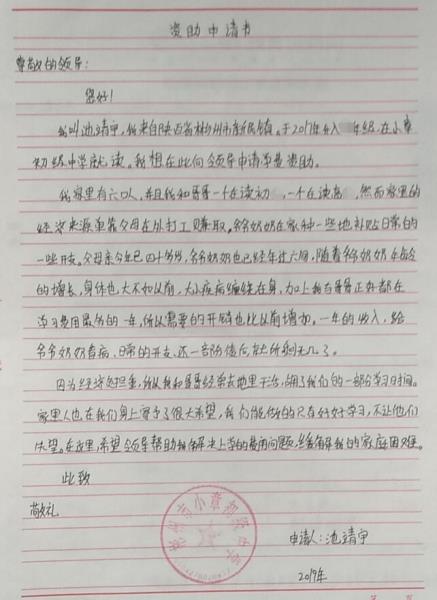 资助申请书
尊敬的领导:
您好!
我叫池靖宇,我来自陕西省彬州市新民镇。于2017年入 年级,在小章
初级中学就读。我想在此向领导申请学费资助。
我家里有六口人,并且我和哥哥一个在读初 ,一个在读高 ,然而家里的
经济来源单靠父母在外打工赚取,爷爷奶奶在家种一些地补贴日常的
一些开支。父母亲今年已四十多岁,爷爷奶奶也已经年过六旬,随着爷爷奶奶年龄
的增长,身体也大不如以前,大小疾病缠绕在身,加上我与哥哥正好都在
学习费用最多的一年,所以需要的开销也比以前增加。一年的收入,给
爷爷奶奶看病、日常的开支、还一部份债后,就所剩无几了。
因为经济负担重,所以我和哥哥经常去地里干活,
家里人也在我们身上寄予了很大希望,我们能做的只有好好学习,不让他们
失望。在这里,希望领导帮助我解决上学的费用问题,缓解我的家庭困难。
此致
敬礼
申请人:池靖宇
2019年